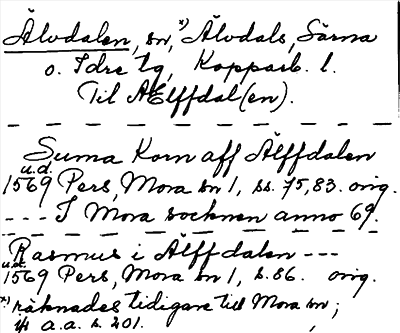 Älvdalen, sn,*) Älvdals, Särna
o. Idre tg, Kopparb. l.
Til AElffdal(en).
Suma Korn aff Älffdalen
u.d.
1569 Pers, Mora sn 1, ss. 75, 83. orig.
--- I Mora socknen anno 69.
Rasmus i Älffdalen ---
u.d.
1569 Pers, Mora sn 1, s. 86. orig.
*) räknades tidigare till Mora sn;
a.a. s. 201.